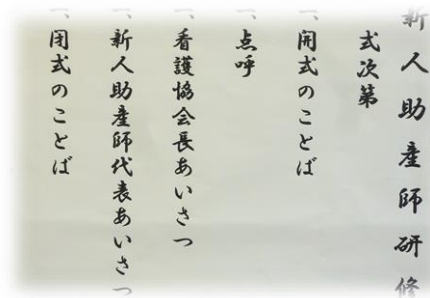 新人助産師研修
式次第
一、開式のことば
一、点呼
一、看護協会長あいさつ
一、新人助産師代表あいさつ
一、閉式のことば